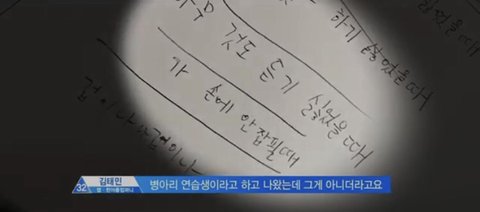 하기 싫었을때
것도 듣기 싫었을때
가 손에 안잡필때
겁이
32
김태민
병아리 연습생이라고 하고 나왔는데 그게 아니더라고요